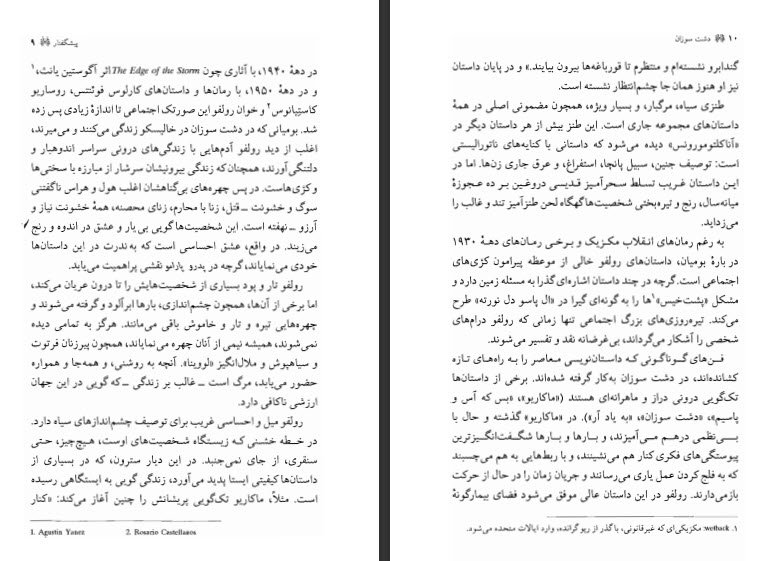 پیشگفتار ۹
در دههٔ ۱۹۴۰، با آثاری چون The Edge of the Storm اثر آگوستین یانث،۱
و در دههٔ ۱۹۵۰، با رمان‌ها و داستان‌های کارلوس فوئنتس، روساریو
کاستِیانوس۲ و خوان رولفو این صورتک اجتماعی تا اندازهٔ زیادی پس زده
شد. بومیانی که در دشت سوزان در خالیسکو زندگی می‌کنند و می‌میرند،
اغلب از دید رولفو آدم‌هایی با زندگی‌های درونی سراسر اندوهبار و
دلتنگی‌آورند، همچنان‌که زندگی بیرونیشان سرشار از مبارزه با سختی‌ها
و کژی‌هاست. در پس چهره‌های بی‌گناهشان اغلب هول و هراس ناگفتنی
سوگ و خشونت ــ قتل، زنا با محارم، زنای محصنه، همهٔ خشونت نیاز و
آرزو ــ نهفته است. این شخصیت‌ها گویی بی‌یار و عشق در اندوه و رنج
می‌زیند. در واقع، عشق احساسی است که به‌ندرت در این داستان‌ها
خودی می‌نمایاند، گرچه در پدرو پارامو نقشی پراهمیت می‌یابد.
رولفو تار و پود بسیاری از شخصیت‌هایش را تا درون عریان می‌کند،
اما برخی از آن‌ها، همچون چشم‌اندازی، بارها ابرآلود و گرفته می‌شوند و
چهره‌هایی تیره و تار و خاموش باقی می‌مانند. هرگز به تمامی دیده
نمی‌شوند، همیشه نیمی از آنان چهره می‌نمایاند، همچون پیرزنان فرتوت
و سیاهپوش و ملال‌انگیز «لووینا». آنچه به روشنی، و همه‌جا و همواره
حضور می‌یابد، مرگ است ــ غالب بر زندگی ــ که گویی در این جهان
ارزشی ناکافی دارد.
رولفو میل و احساسی غریب برای توصیف چشم‌اندازهای سیاه دارد.
در خطه خشنی که زیستگاه شخصیت‌های اوست، هیچ‌چیز، حتی
سنقری، از جای نمی‌جنبد. در این دیار سترون، که در بسیاری از
داستان‌ها کیفیتی ایستا پدید می‌آورد، زندگی گویی به ایستگاهی رسیده
است. مثلاً، ماکاریو تک‌گویی پریشانش را چنین آغاز می‌کند: «کنار
1. Agustín Yanez 2. Rosario Castellanos
۱۰ دشت سوزان
گندابرو نشسته‌ام و منتظرم تا قورباغه‌ها بیرون بیایند.» و در پایان داستان
نیز او هنوز همان جا چشم‌انتظار نشسته است.
طنزی سیاه، مرگبار، و بسیار ویژه، همچون مضمونی اصلی در همهٔ
داستان‌های مجموعه جاری است. این طنز بیش از هر داستان دیگر در
«آناکلتومورونس» دیده می‌شود که داستانی با کنایه‌های ناتورالیستی
است: توصیف جنین، سبیل پانچا، استفراغ، و عرق جاری زن‌ها. اما در
این داستان غریب تسلط سحرآمیز قدیسی دروغین بر ده عجوزهٔ
میانه‌سال، رنج و تیره‌بختی شخصیت‌ها گهگاه لحن طنزآمیز تند و غالب را
می‌زداید.
به رغم رمان‌های انقلاب مکزیک و برخی رمان‌های دههٔ ۱۹۳۰
در بارهٔ بومیان، داستان‌های رولفو خالی از موعظه پیرامون کژی‌های
اجتماعی است. گرچه در چند داستان اشاره‌ای گذرا به مسئله زمین دارد و
مشکل «پشت‌خیس»۱ها را به گونه‌ای گیرا در «ال پاسو دل نورته» طرح
می‌کند. تیره‌روزی‌های بزرگ اجتماعی تنها زمانی که رولفو درام‌های
شخصی را آشکار می‌گرداند، بی‌غرضانه نقد و تفسیر می‌شوند.
فن‌های گوناگونی که داستان‌نویسی معاصر را به راه‌های تازه
کشانده‌اند، در دشت سوزان به‌کار گرفته شده‌اند. برخی از داستان‌ها
تک‌گویی درونی دراز و ماهرانه‌ای هستند («ماکاریو»، «بس که آس و
پاسیم»، «دشت سوزان»، «به یاد آر»). در «ماکاریو» گذشته و حال با
بی‌نظمی درهم می‌آمیزند، و بارها و بارها شگفت‌انگیزترین
پیوستگی‌های فکری کنار هم می‌نشینند، و با ربط‌هایی به هم می‌چسبند
که به فلج کردن عمل یاری می‌رسانند و جریان زمان را در حال از حرکت
بازمی‌دارند. رولفو در این داستان عالی موفق می‌شود فضای بیمارگونهٔ
۱. wetback: مکزیکی‌ای که غیرقانونی، با گذر از ریو گرانده، وارد ایالات متحده می‌شود.